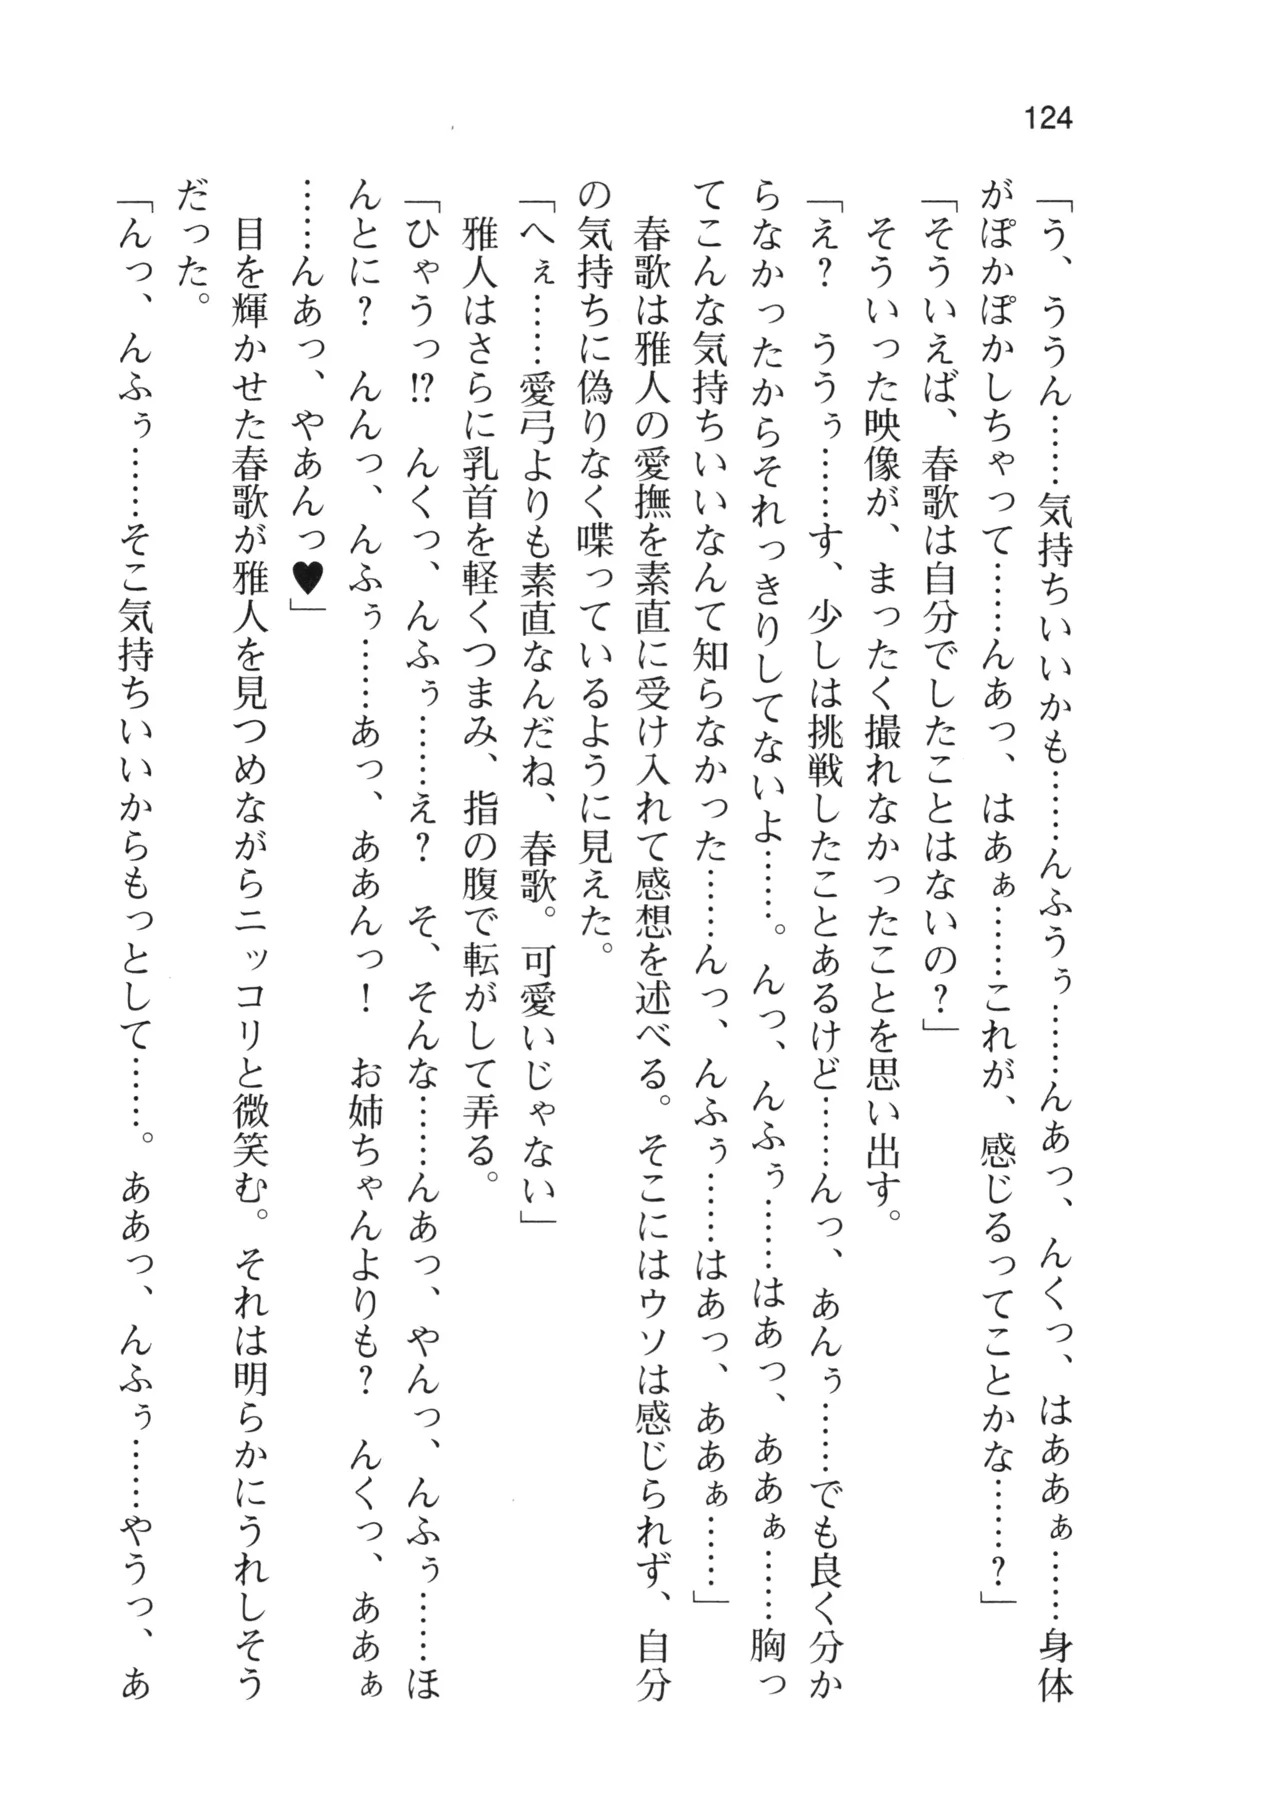 124
「う、ううん……気持ちいいかも……んふうぅ……んあっ、んくっ、はああぁ……身体
がぽかぽかしちゃって……んあっ、はあぁ……これが、感じるってことかな……？」
「そういえば、春歌は自分でしたことはないの？」
そういった映像が、まったく撮れなかったことを思い出す。
「え？　ううぅ……す、少しは挑戦したことあるけど……んっ、あんぅ……でも良く分か
らなかったからそれっきりしてないよ……。んっ、んふぅ……はあっ、ああぁ……胸っ
てこんな気持ちいいなんて知らなかった……んっ、んふぅ……はあっ、ああぁ……」
春歌は雅人の愛撫を素直に受け入れて感想を述べる。そこにはウソは感じられず、自分
の気持ちに偽りなく喋っているように見えた。
「へぇ……愛弓よりも素直なんだね、春歌。可愛いじゃない」
雅人はさらに乳首を軽くつまみ、指の腹で転がして弄る。
「ひゃうっ!?　んくっ、んふぅ……え？　そ、そんな……んあっ、やんっ、んふぅ……ほ
んとに？　んんっ、んふぅ……あっ、ああんっ！　お姉ちゃんよりも？　んくっ、ああぁ
……んあっ、やあんっ♥」
目を輝かせた春歌が雅人を見つめながらニッコリと微笑む。それは明らかにうれしそう
だった。
「んっ、んふぅ……そこ気持ちいいからもっとして……。ああっ、んふぅ……やうっ、あ